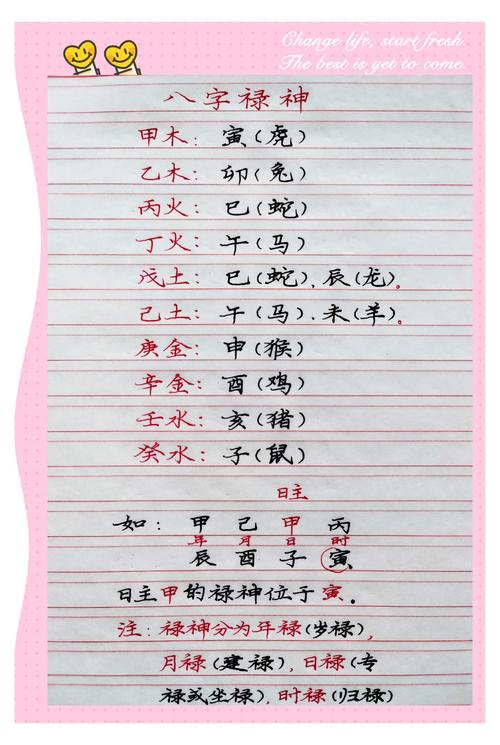 Change life, start fresh.
The best is yet to come.
八字禄神
甲木：寅（虎）
乙木：卯（兔）
丙火：巳（蛇）
丁火：午（马）
戊土：巳（蛇）、辰（龙）。
己土：午（马）、未（羊）。
庚金：申（猴）
辛金：酉（鸡）
壬水：亥（猪）
癸水：子（鼠）
日主
如：甲 己 甲 丙
年 月 日 时
辰 酉 子 寅
日主甲的禄神位于寅。
注：禄神分为年禄（岁禄），
月禄（建禄），日禄（专
禄或坐禄），时禄（归禄）